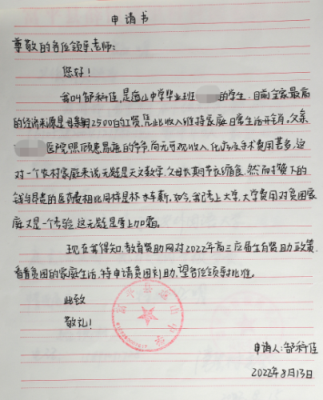 申请书
尊敬的各位领导老师:
您好!
我叫邹科佳,是 山中学毕业班 的学生,目前全家最高
的经济来源是母亲月2500的工资,凭此收入维持家庭日常生活开销,父亲
医院照顾患癌的爷爷,而无可观收入,化疗及手术费用甚多,这
对一个农村家庭来说无疑是天文数字,父母长期节衣缩食,然而攒下的
钱与昂贵的医药费相比同样是杯水车薪,如今,我已考上大学,大学费用对贫困家
庭又是一个考验,这无疑是雪上加霜。
现在我得知,教育资助网对2022年高三应届生有资助政策,
看着贫困的家庭生活,特申请贫困补助,望各位领导批准。
此致
敬礼!
申请人:邹科佳
2022年8月13日